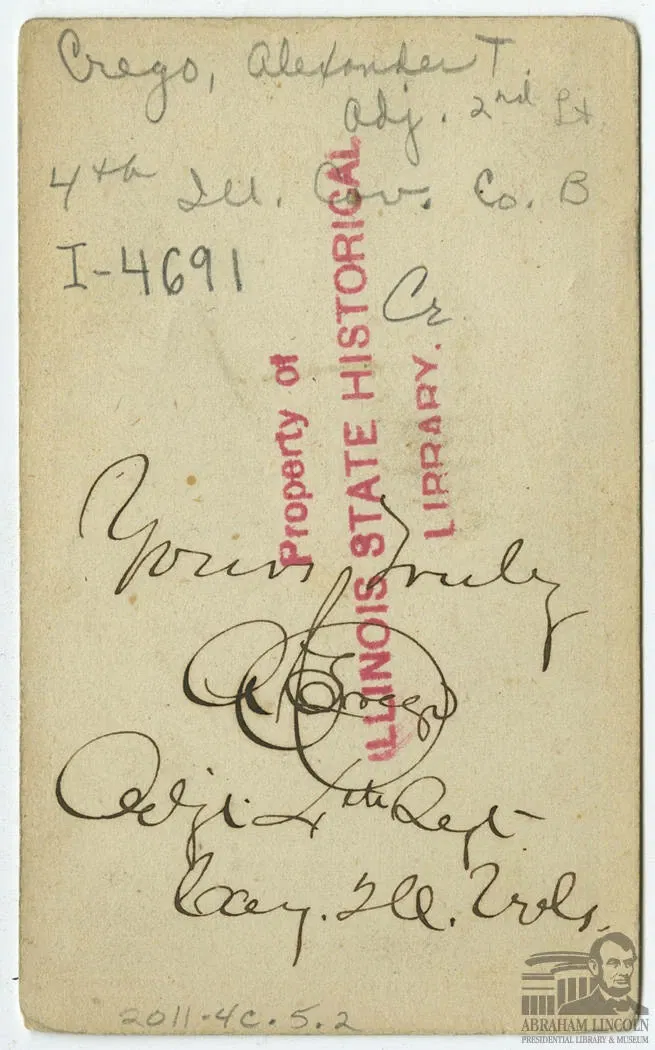 Crego, Alexander T.
Adj. 2nd Lt.
4th Ill. Cav. Co. B
I-4691
Cr
Property of
ILLINOIS STATE HISTORICAL
LIBRARY.
Yours Truly
A T Crego
Adjt. 4th Regt
Cav. Ill. Vols.
2011.4c.5.2
ABRAHAM LINCOLN
PRESIDENTIAL LIBRARY & MUSEUM